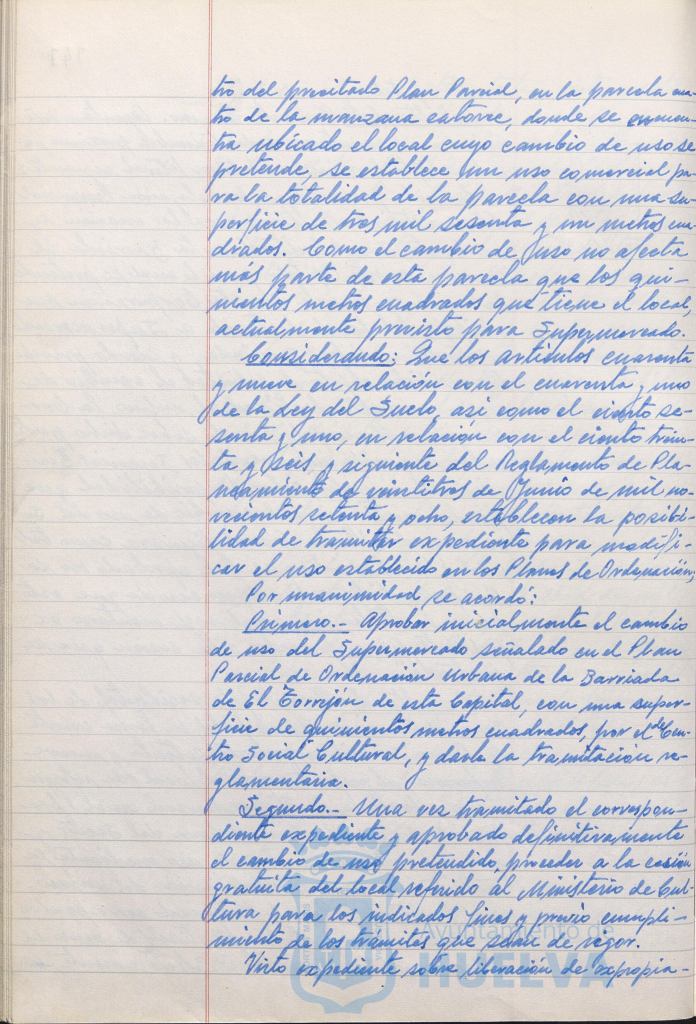 tro del precitado Plan Parcial, en la parcela cua-
tro de la manzana catorce, donde se encuen-
tra ubicado el local cuyo cambio de uso se
pretende, se establece un uso comercial pa-
ra la totalidad de la parcela con una su-
perficie de tres mil sesenta y un metros cua-
drados. Como el cambio de uso no afecta
más parte de esta parcela que los qui-
nientos metros cuadrados que tiene el local,
actualmente previsto para Supermercado.
Considerando: Que los artículos cuarenta
y nueve en relación con el cuarenta y uno
de la Ley del Suelo, así como el ciento se-
senta y uno, en relación con el ciento trein-
ta y seis y siguiente del Reglamento de Pla-
neamiento de veintitres de Junio de mil no-
vecientos setenta y ocho, establecen la posibi-
lidad de tramitar expediente para modifi-
car el uso establecido en los Planes de Ordenación.
Por unanimidad se acordó:
Primero.- Aprobar inicialmente el cambio
de uso del Supermercado señalado en el Plan
Parcial de Ordenación Urbana de la Barriada
de El Torrejón de esta Capital, con una super-
ficie de quinientos metros cuadrados, por el de Cen-
tro Social Cultural, y darle la tramitación re-
glamentaria.
Segundo.- Una vez tramitado el correspon-
diente expediente y aprobado definitivamente
el cambio de uso pretendido, proceder a la cesión
gratuita del local referido al Ministerio de Cul-
tura para los indicados fines y previo cumpli-
miento de los trámites que sean de rigor.
Visto expediente sobre liberación de expropia-
Ayuntamiento de
HUELVA